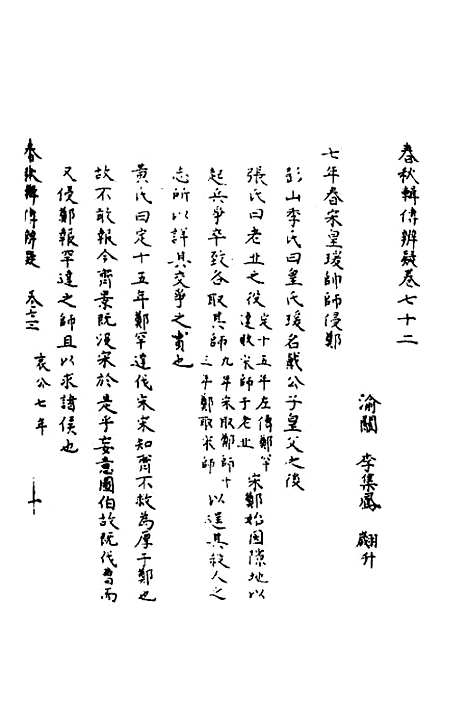 春秋輯傳辨疑卷七十二
渝關 李集鳳 翽升
七年春宋皇瑗帥師侵鄭
彭山李氏曰皇氏瑗名戴公子皇父之後
張氏曰老丘之役定十五年左傳鄭罕達敗宋師于老丘宋鄭始因隙地以
起兵爭卒致各取其師九年宋取鄭師十三年鄭取宋師以逞其殺人之
志所以詳其交爭之責也
黃氏曰定十五年鄭罕達伐宋宋知齊不救為厚于鄭也
故不敢報今齊景既沒宋於是乎妄意圖伯故既伐曹而
又侵鄭報罕達之師且以求諸侯也
春秋輯傳辨疑 卷七十二 哀公七年 一